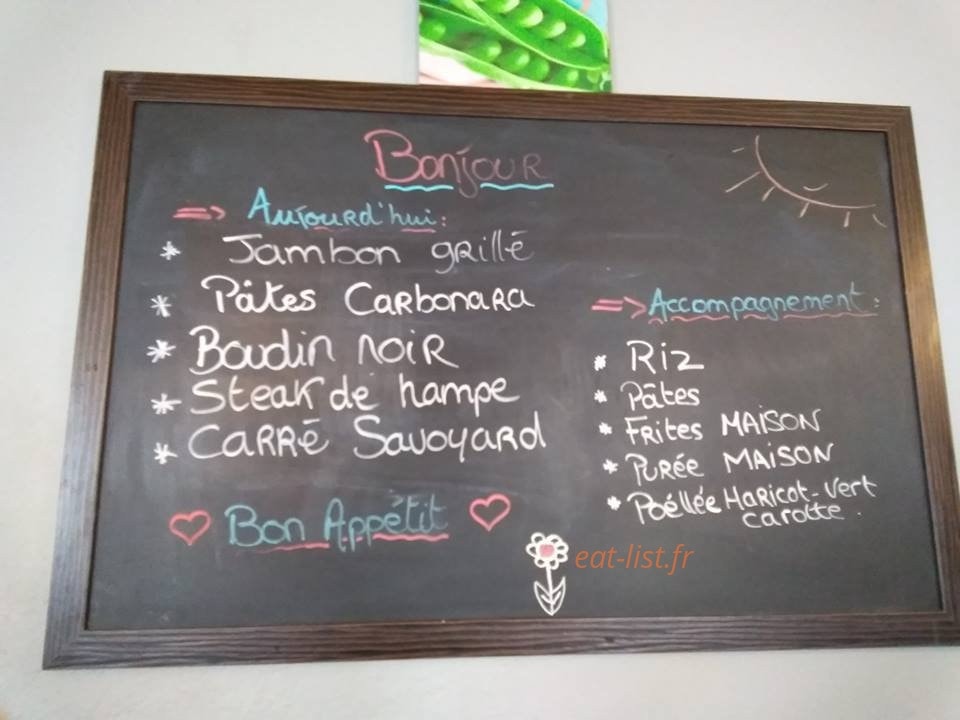 Bonjour
=> Aujourd'hui:
* Jambon grillé
* Pâtes Carbonara
* Boudin noir
* Steak de hampe
* Carré Savoyard
Bon Appétit
=> Accompagnement:
* Riz
* Pâtes
* Frites MAISON
* Purée MAISON
* Poéllée Haricot-Vert
carotte.
eat-list.fr